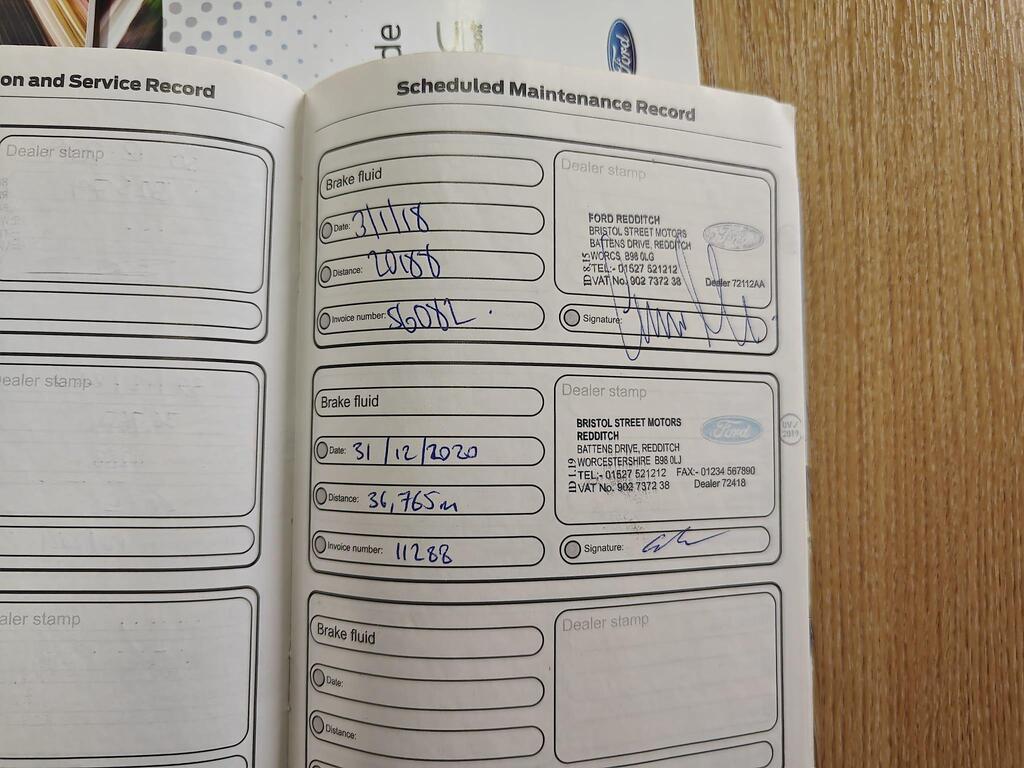 de
Ford
on and Service Record
Dealer stamp
ealer stamp
aler stamp
Scheduled Maintenance Record
Brake fluid
Date: 3/1/18
Distance: 20188
Invoice number: 56082
Dealer stamp
FORD REDDITCH
BRISTOL STREET MOTORS
BATTENS DRIVE, REDDITCH
WORCS, B98 0LG
TEL:- 01527 521212
VAT No. 902 7372 38
Dealer 72112AA
ID 8.15
Ford
Signature:
Brake fluid
Date: 31/12/2020
Distance: 36,765m
Invoice number: 11288
Dealer stamp
BRISTOL STREET MOTORS
REDDITCH
BATTENS DRIVE, REDDITCH
WORCESTERSHIRE B98 0LJ
TEL:- 01527 521212 FAX:- 01234 567890
VAT No. 902 7372 38 Dealer 72418
ID 1.19
Ford
UV/
2019
Signature:
Brake fluid
Date:
Distance:
Dealer stamp